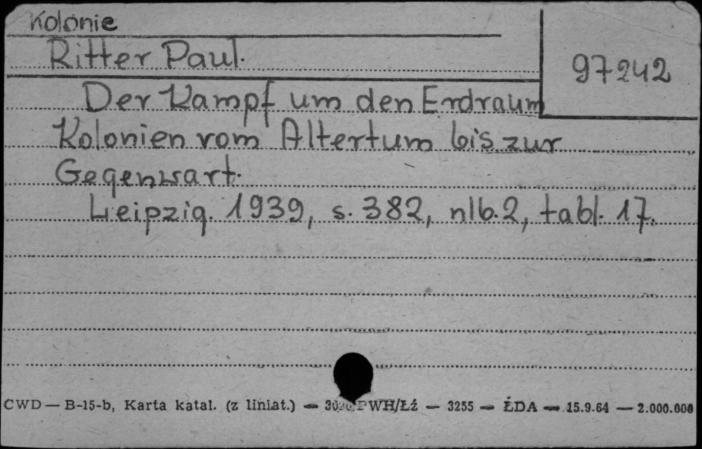 Kolonie
Ritter Paul.
97242
Der Kampf um den Erdraum
Kolonien vom Altertum bis zur
Gegenwart.
Leipzig. 1939, s. 382, nlb. 2, tabl. 17.
CWD — B-15-b, Karta katal. (z liniat.) — PWH/Łż — 3255 — ŁDA — 15.9.64 — 2.000.000